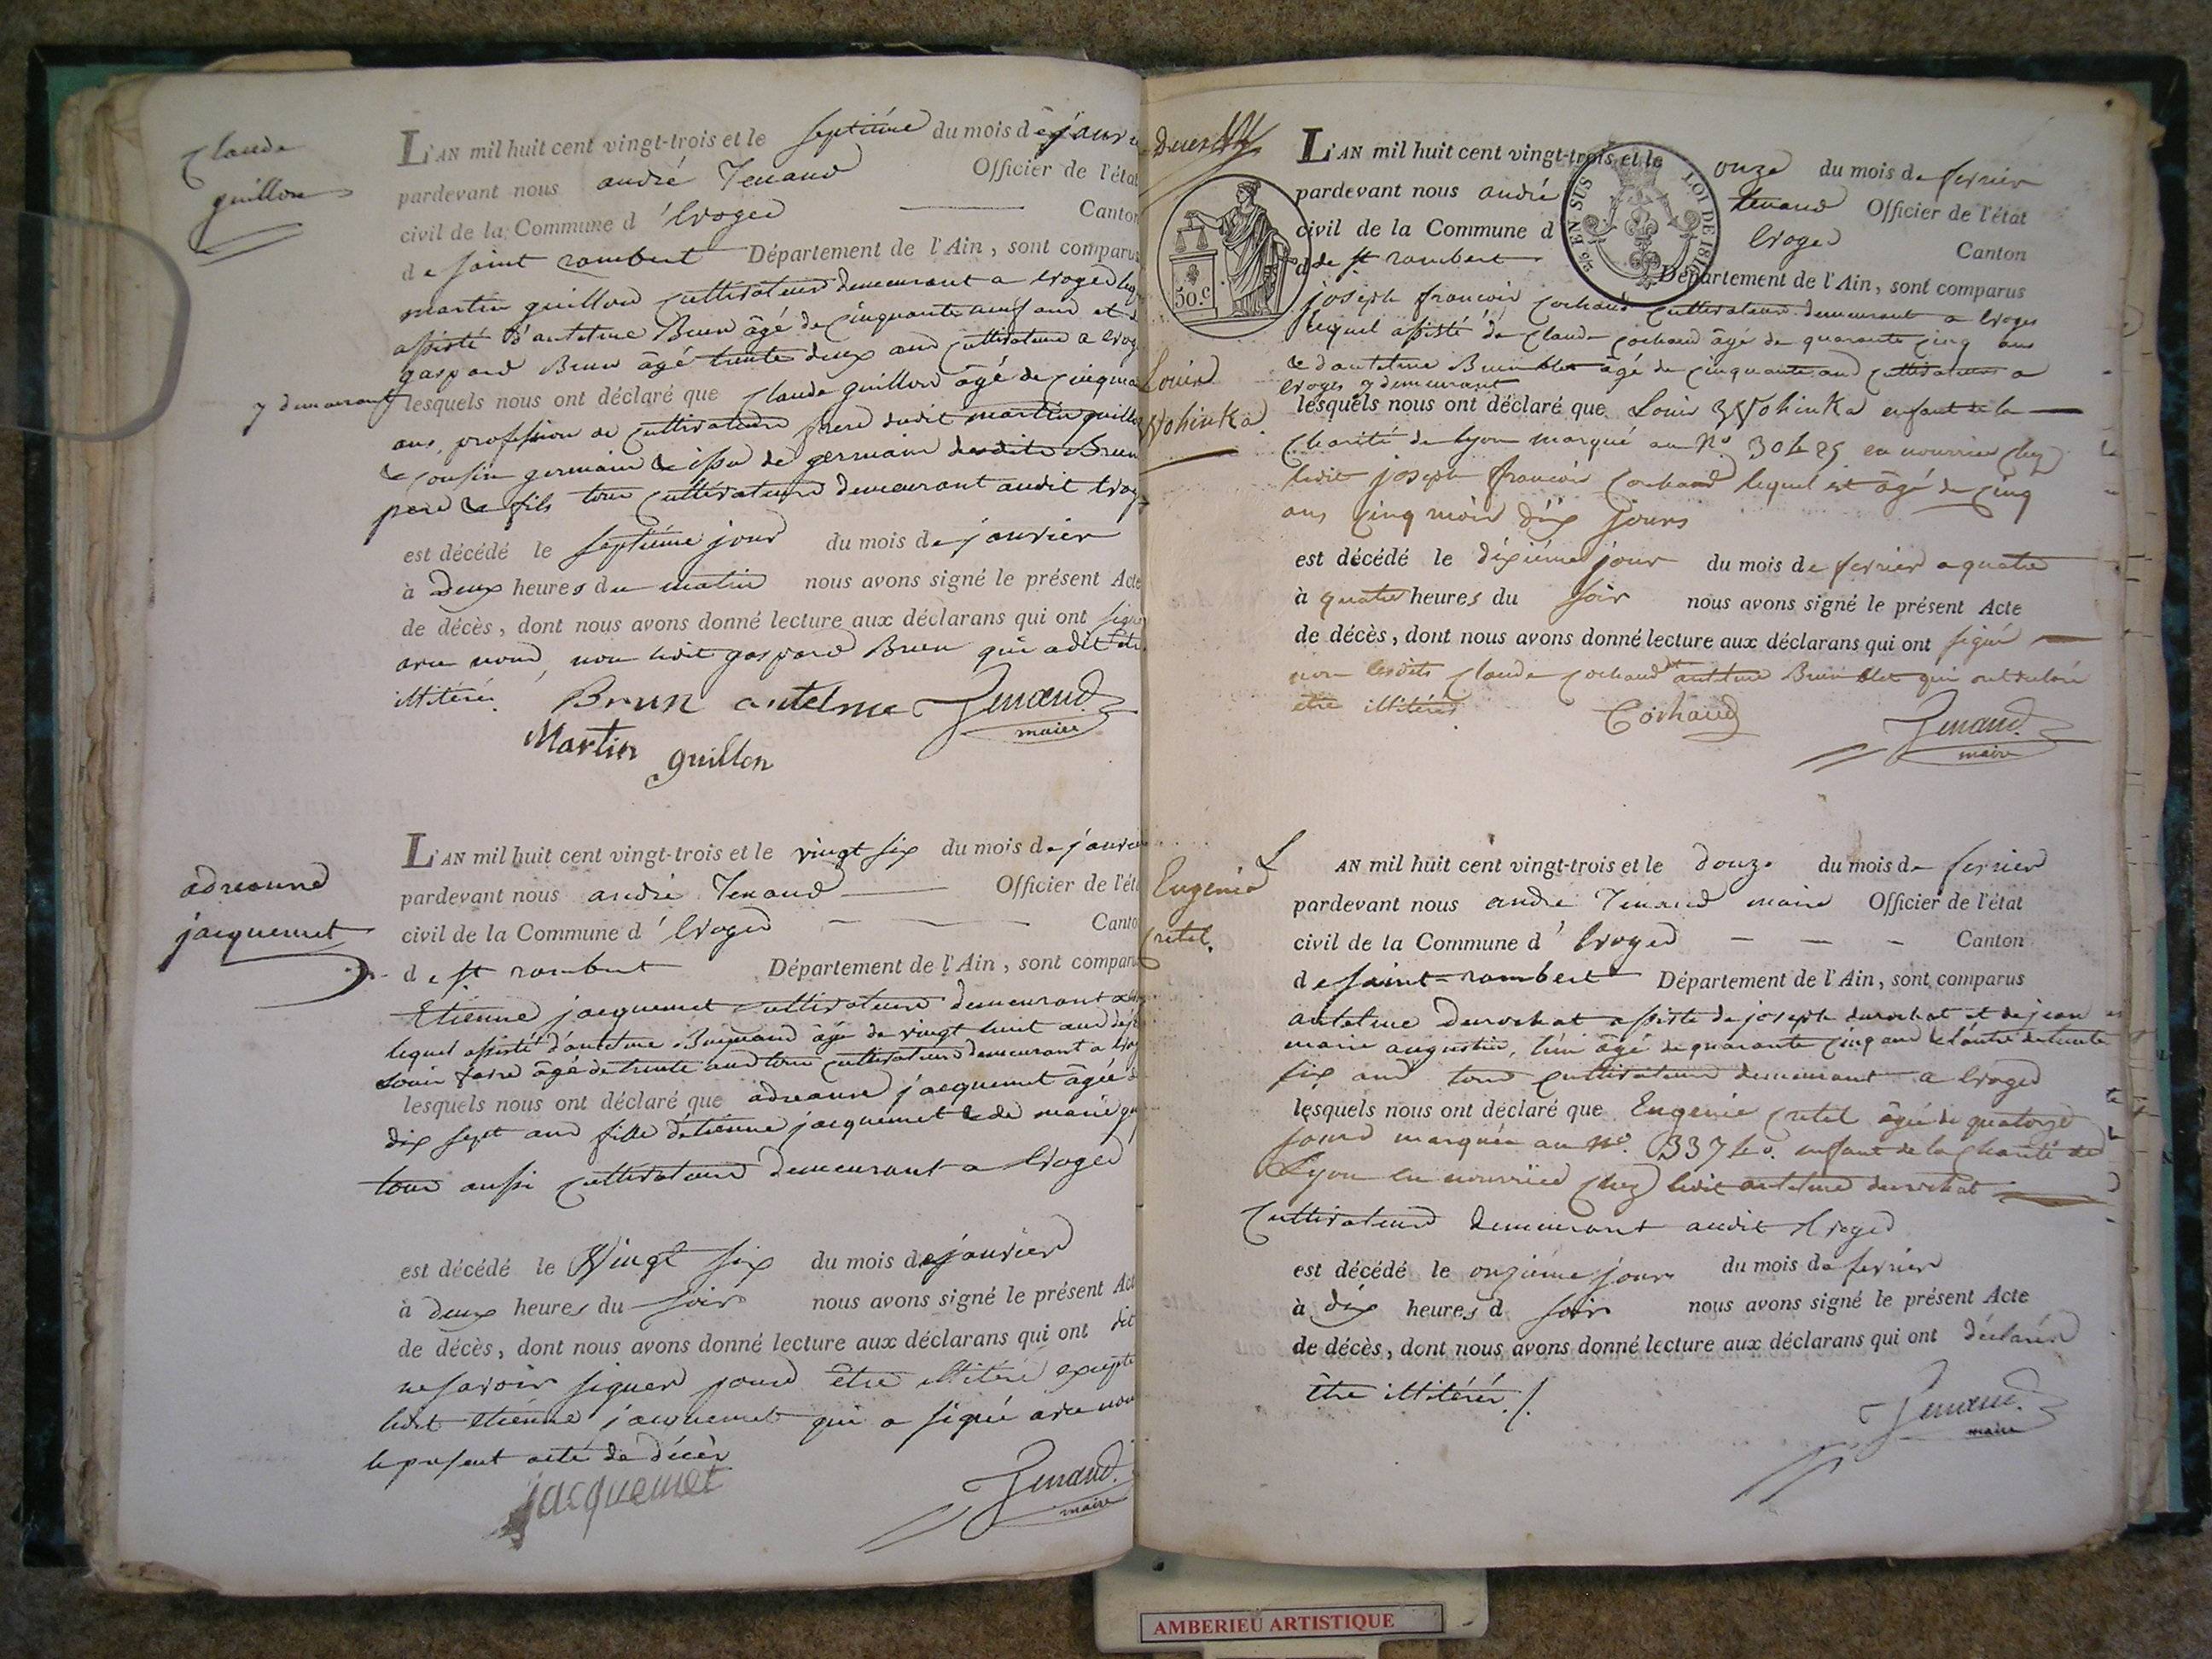 Claude
guillon
L'AN mil huit cent vingt-trois et le septième du mois de janvi
pardevant nous andré Tenand Officier de l'état
civil de la Commune d'Evoges Canton
de saint rambert Département de l'Ain, sont comparus
martin guillon cultivateur demeurant a Evoges
assisté d'antelme Brun âgé de cinquante neuf ans et
gaspard Brun âgé trente deux ans cultivateurs a Evog
y demeurant
lesquels nous ont déclaré que Claude guillon âgé de cinquan
ans, profession de cultivateur frere dudit martin guillon
& cousin germain & issu de germain desdits Brun
pere & fils tous cultivateurs demeurant audit Evog
est décédé le septième jour du mois de janvier
à deux heures du matin nous avons signé le présent Acte
de décès, dont nous avons donné lecture aux déclarans qui ont signé
avec nous, non ledit gaspard Brun qui a dit être
illitéré.
Brun antelme Tenand
maire
Martin guillon
adreanne
jacquemet
L'AN mil huit cent vingt-trois et le vingt six du mois de janvier
pardevant nous andré Tenand Officier de l'éta
civil de la Commune d'Evoges Canto
de st rambert Département de l'Ain, sont comparu
Etienne jacquemet cultivateur demeurant a
lequel assisté d'antelme âgé de vingt huit ans
Louis favre âgé de trente ans tous cultivateurs demeurant a Evog
lesquels nous ont déclaré que adreanne jacquemet âgée de
dix sept ans fille d'etienne jacquemet & de marie
tous aussi cultivateurs demeurant a Evoges
est décédé le Vingt six du mois de janvier
à deux heures du soir nous avons signé le présent Act
de décès, dont nous avons donné lecture aux déclarans qui ont dit
ne savoir signer pour être illitéré excepté
ledit etiénne jacquemet qui a signé avec nous
le présent acte de décès
jacquemet Tenand
maire
Louis
Wohinka
50.c
EN SUS
LOI DE 181
L'AN mil huit cent vingt-trois et le onze du mois de fevrier
pardevant nous andré tenand Officier de l'état
civil de la Commune d Evoges Canton
d de st rambert Département de l'Ain, sont comparus
joseph francois Cochand cultivateur demeurant a Evoges
lequel assisté de Claude cochand âgé de quarante cinq ans
& d'antelme Brun âgé de cinquante ans cultivateurs a
Evoges y demeurant
lesquels nous ont déclaré que Louis Wohinka enfant de la
Charité de lyon marqué au No en nourrice chez
ledit joseph francois Cochand lequel est âgé de cinq
ans cinq mois dix jours
est décédé le dixiéme jour du mois de fevrier a quatre
à quatre heures du soir nous avons signé le présent Acte
de décès, dont nous avons donné lecture aux déclarans qui ont signé
non lesdits Claude cochand antelme Brun qui ont déclaré
etre illitérés
Cochand Tenand
maire
Eugenie
Cretel.
L
AN mil huit cent vingt-trois et le douze du mois de fevrier
pardevant nous andré Tenand maire Officier de l'état
civil de la Commune d'Evoges Canton
de saint-rambert Département de l'Ain, sont comparus
antelme Durochat assisté de joseph durochat et de jean
marie augustin, l'un âgé de quarante cinq ans & l'autre de trente
six ans tous cultivateurs demeurant a Evoges
lesquels nous ont déclaré que Eugenie Cretel âgée de quatorze
jours marquée au no. enfant de la Charité de
Lyon en nourrice chez ledit antelme durochat
Cultivateur demeurant audit Evoges
est décédé le onziéme jour du mois de fevrier
à dix heures d soir nous avons signé le présent Acte
de décès, dont nous avons donné lecture aux déclarans qui ont déclarés
être illitérés./.
Tenand
maire
AMBERIEU ARTISTIQUE